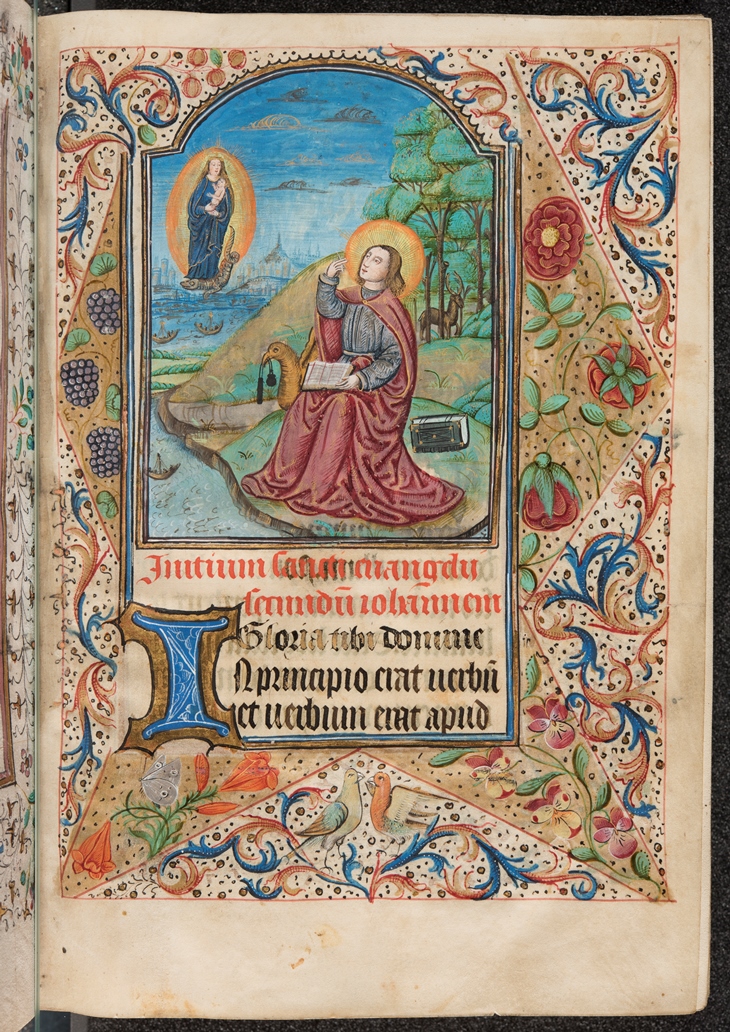 Initium sancti euangelii
secundū iohannem
Gloria tibi domine
IN principio erat uerbū
et uerbum erat apud